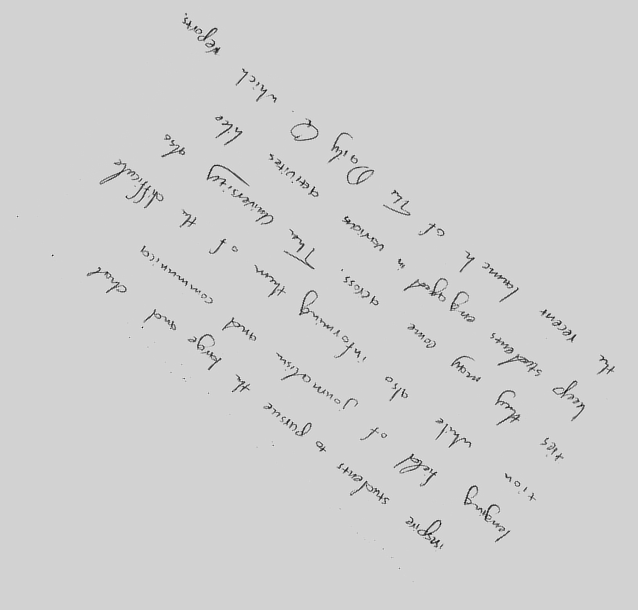 inspire students to pursue the large and chal
lenging field of journalism and communica
tion while also informing them of the difficult
ties they may come across. The University also
keep students engaged in various activities like
the recent launch of The Daily Q. which reports.